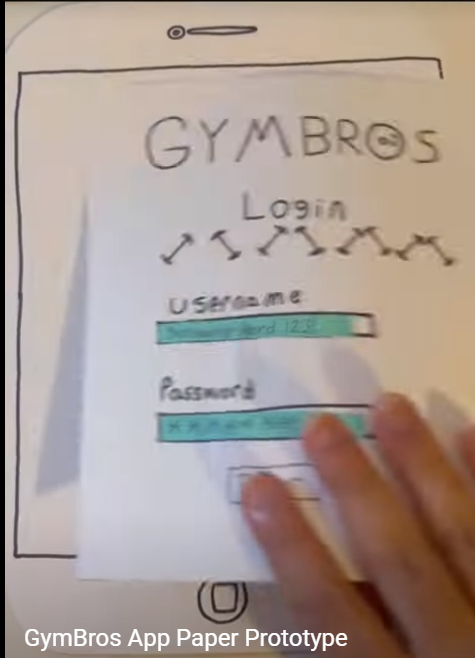 GYMBROS
Login
Username
123
Password
GymBros App Paper Prototype